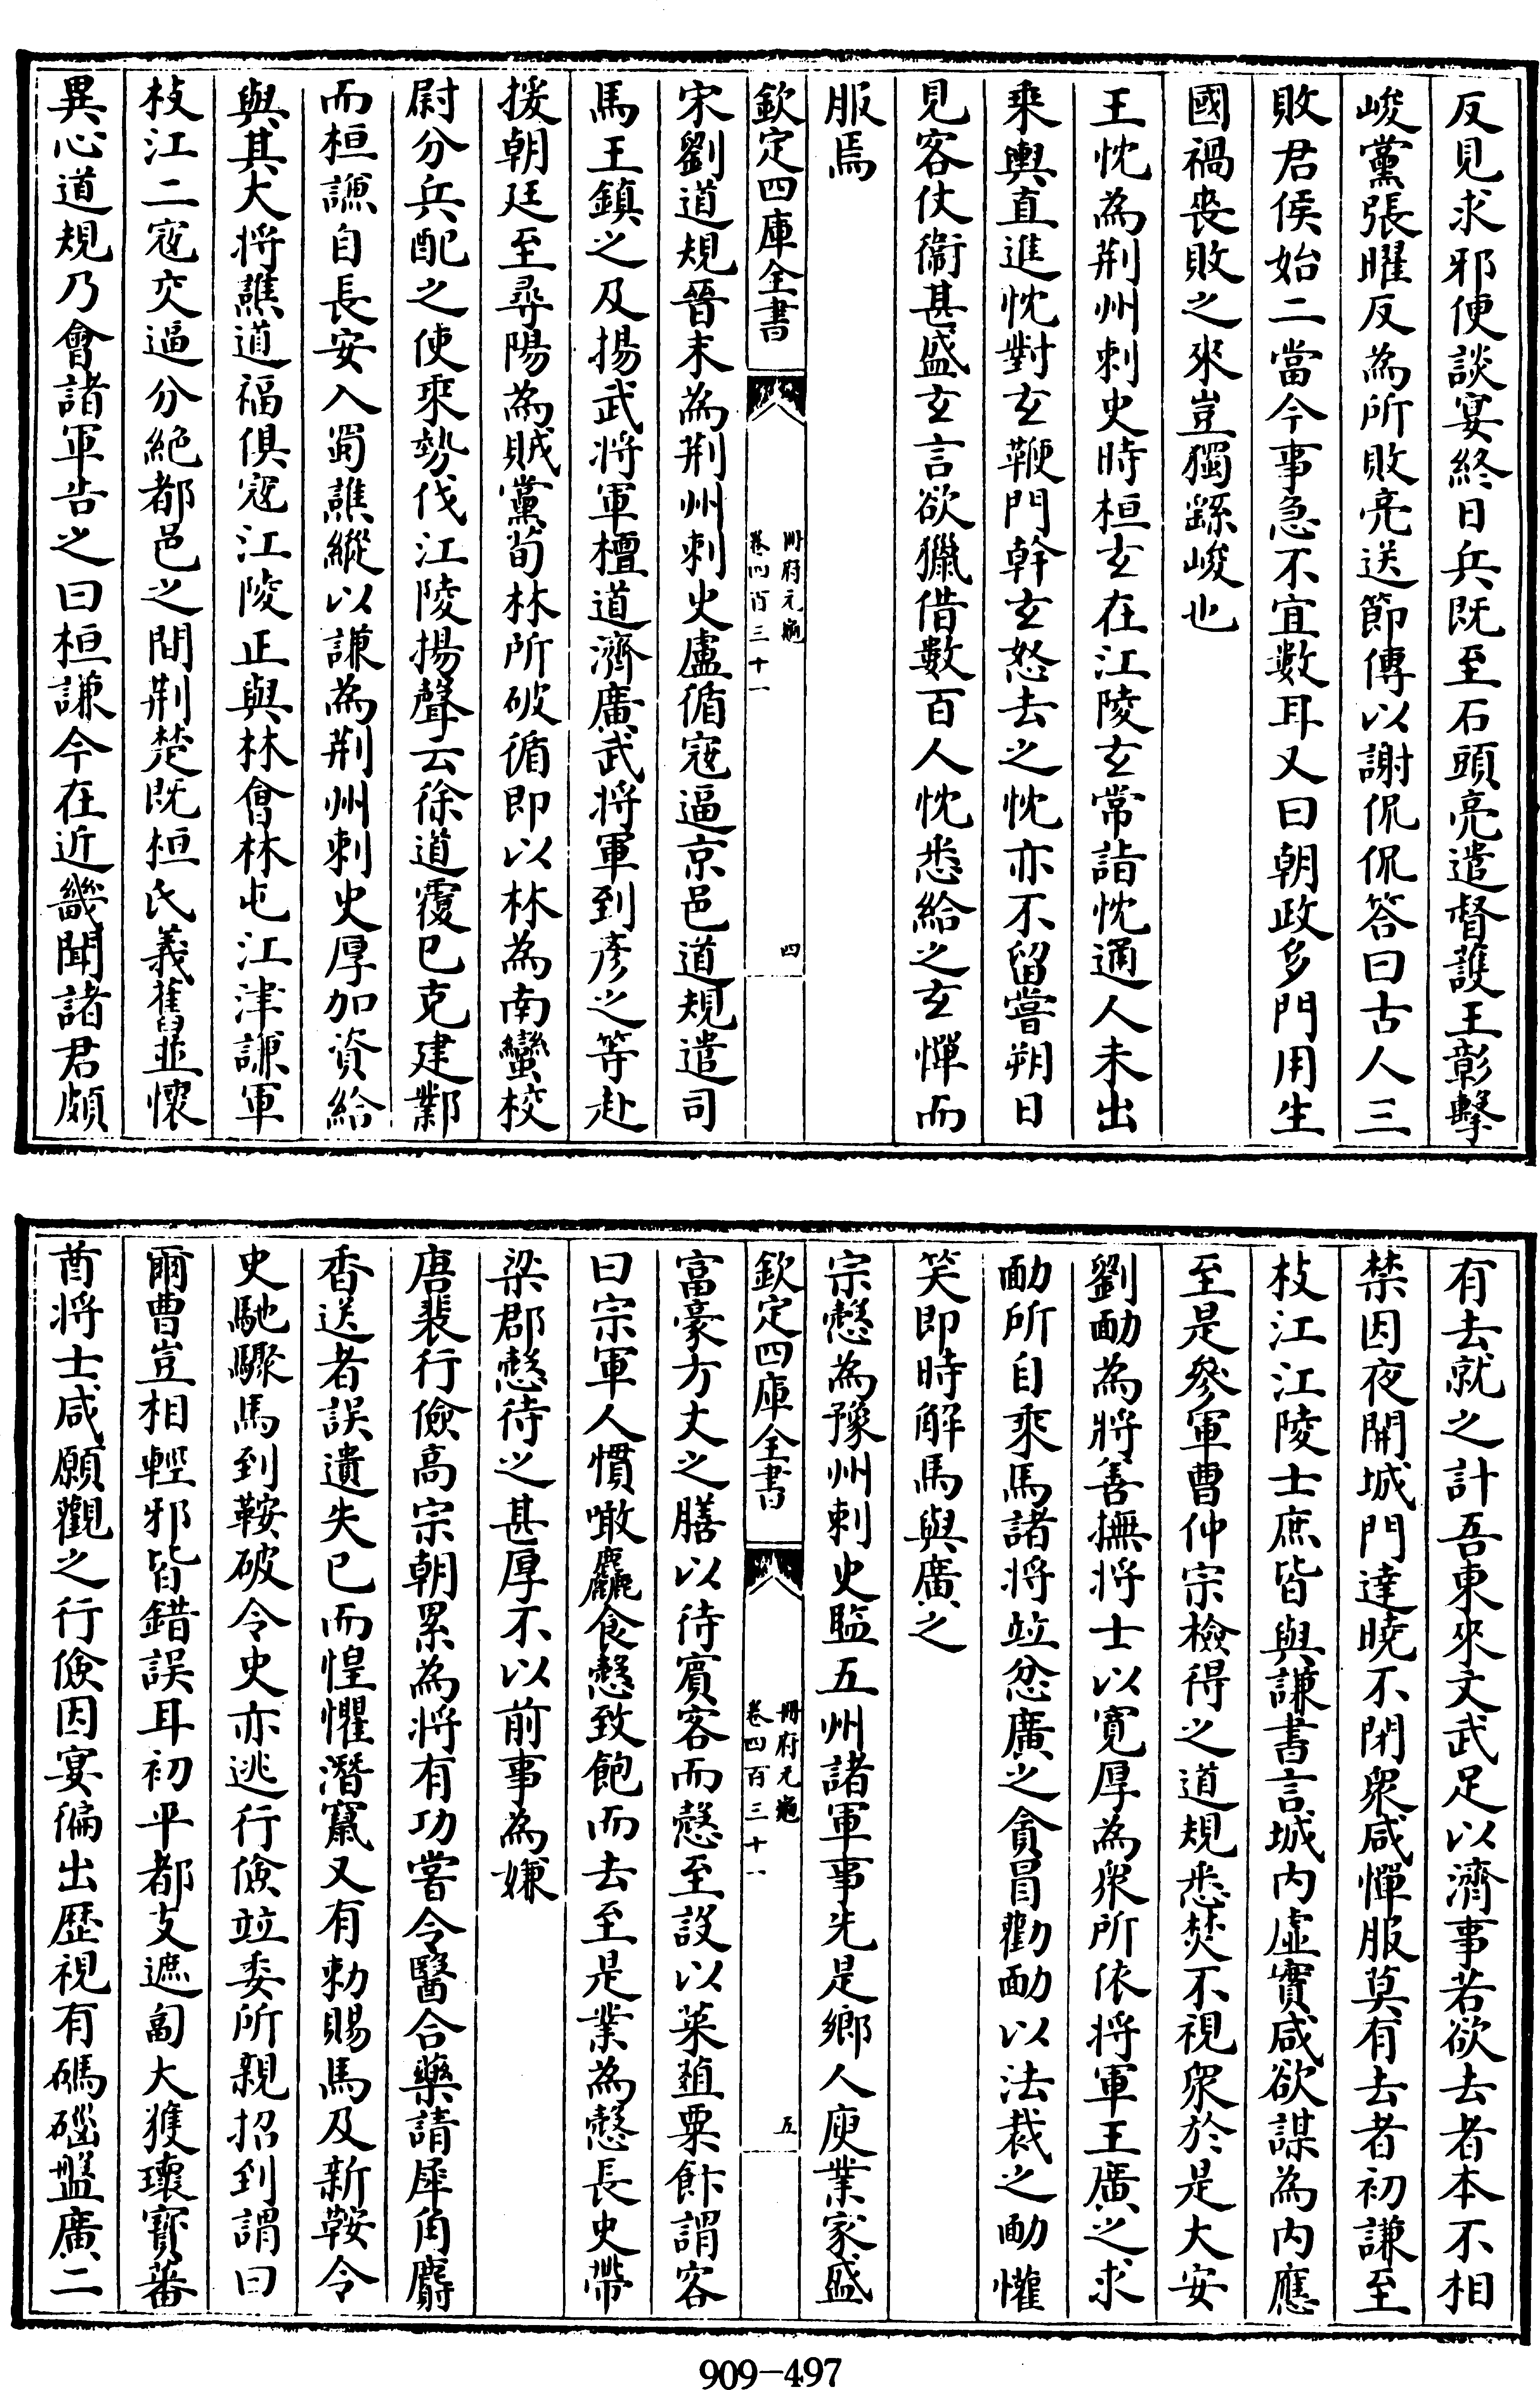 反見求邪便談宴終日兵既至石頭亮遣督護王彰擊
峻黨張曜反為所敗亮送節傳以謝侃侃答曰古人三
敗君侯始二當今事急不宜數耳又曰朝政多門用生
國禍喪敗之來豈獨繇峻也
王忱為荆州刺史時桓玄在江陵玄常詣忱通人未出
乘輿直進忱對玄鞭門幹玄怒去之忱亦不留嘗朔日
見客仗衞甚盛玄言欲獵借數百人忱悉給之玄憚而
服焉
欽定四庫全書
冊府元龜
卷四百三十一
四
宋劉道規晉末為荆州刺史盧循寇逼京邑道規遣司
馬王鎮之及揚武將軍檀道濟廣武將軍到彥之等赴
援朝廷至尋陽為賊黨荀林所破循即以林為南蠻校
尉分兵配之使乘勢伐江陵揚聲云徐道覆已克建鄴
而桓謙自長安入蜀譙縱以謙為荆州刺史厚加資給
與其大將譙道福俱寇江陵正與林會林屯江津謙軍
枝江二寇交逼分絶都邑之間荆楚既桓氏義舊並懷
異心道規乃會諸軍告之曰桓謙今在近畿聞諸君頗
有去就之計吾東來文武足以濟事若欲去者本不相
禁因夜開城門達曉不閉衆咸憚服莫有去者初謙至
枝江江陵士庶皆與謙書言城内虚實咸欲謀為内應
至是參軍曹仲宗檢得之道規悉焚不視衆於是大安
劉勔為將善撫將士以寛厚為衆所依將軍王廣之求
勔所自乘馬諸將竝忿廣之貪冒勸勔以法裁之勔懽
笑即時解馬與廣之
宗慤為豫州刺史監五州諸軍事先是鄉人庾業家盛
欽定四庫全書
冊府元龜
卷四百三十一
五
富豪方丈之膳以待賓客而慤至設以菜葅粟飰謂客
曰宗軍人慣噉麤食慤致飽而去至是業為慤長史帶
梁郡慤待之甚厚不以前事為嫌
唐裴行儉高宗朝累為將有功嘗令醫合藥請犀角麝
香送者誤遺失已而惶懼潛竄又有勑賜馬及新鞍令
史馳驟馬到鞍破令史亦逃行儉竝委所親招到謂曰
爾曹豈相輕邪皆錯誤耳初平都支遮匐大獲瓌寳蕃
酋將士咸願觀之行儉因宴徧出歴視有碼碯盤廣二
909-497